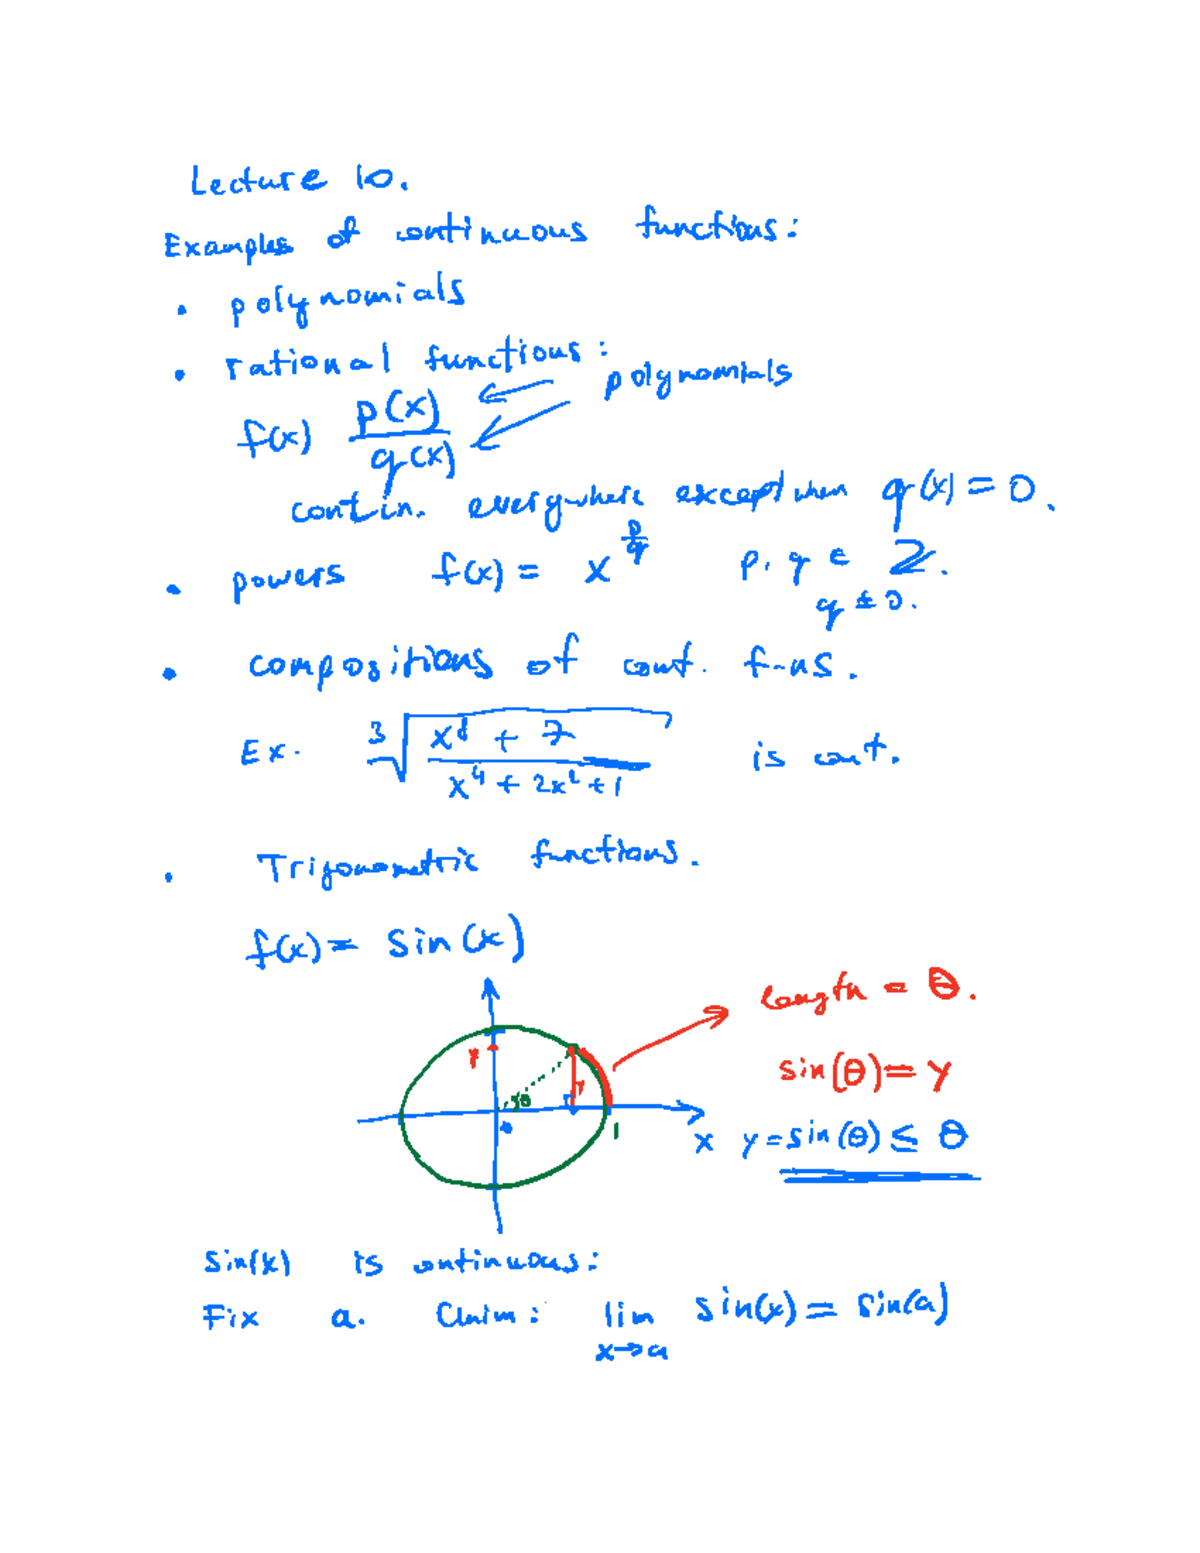 Lecture 10.
Examples of continuous functions:
• polynomials
• rational functions:
polynomials
f(x) p(x)/q(x)
contin. everywhere except when q(x) = 0.
• powers f(x) = x^(p/q) p, q ∈ ℤ.
q ≠ 0.
• compositions of cont. f-ns.
Ex. ∛((x⁸ + 7)/(x⁴ + 2x² + 1)) is cont.
• Trigonometric functions.
f(x) = sin(x)
length = θ.
y
y
θ
sin(θ) = y
1
x y = sin(θ) ≤ θ
sin(x) is continuous:
Fix a. Claim: lim sin(x) = sin(a)
x→a